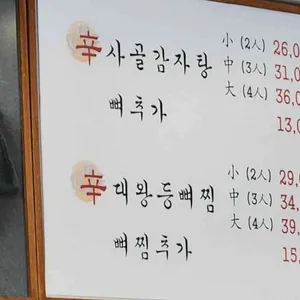 辛 사골감자탕 小 (2人) 26,0
中 (3人) 31,0
大 (4人) 36,0
뼈추가 13,0
辛 대왕등뼈찜 小 (2人) 29,0
中 (3人) 34,
大 (4人) 39,
뼈찜추가 15,